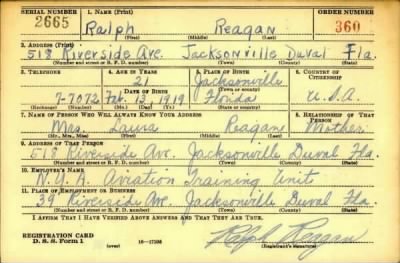 SERIAL NUMBER 1. NAME (Print) ORDER NUMBER
2665 Ralph Reagan 360
(First) (Middle) (Last)
2. ADDRESS (Print)
518 Riverside Ave. Jacksonville Duval Fla.
(Number and street or R. F. D. number) (Town) (County) (State)
3. TELEPHONE 4. AGE IN YEARS 5. PLACE OF BIRTH 6. COUNTRY OF CITIZENSHIP
21 Jacksonville
DATE OF BIRTH (Town or county)
7-7072 Feb. 13 1919 Florida U.S.A.
(Exchange) (Number) (Mo.) (Day) (Yr.) (State or country)
7. NAME OF PERSON WHO WILL ALWAYS KNOW YOUR ADDRESS 8. RELATIONSHIP OF THAT PERSON
Mrs. Laura Reagan Mother
(Mr., Mrs., Miss) (First) (Middle) (Last)
9. ADDRESS OF THAT PERSON
518 Riverside Ave. Jacksonville Duval Fla.
(Number and street or R. F. D. number) (Town) (County) (State)
10. EMPLOYER'S NAME
N.Y.A. Aviation Training Unit
11. PLACE OF EMPLOYMENT OR BUSINESS
39 Riverside Ave. Jacksonville Duval Fla.
(Number and street or R. F. D. number) (Town) (County) (State)
I AFFIRM THAT I HAVE VERIFIED ABOVE ANSWERS AND THAT THEY ARE TRUE.
REGISTRATION CARD
D. S. S. Form 1 (over) 16—17105 Ralph Reagan